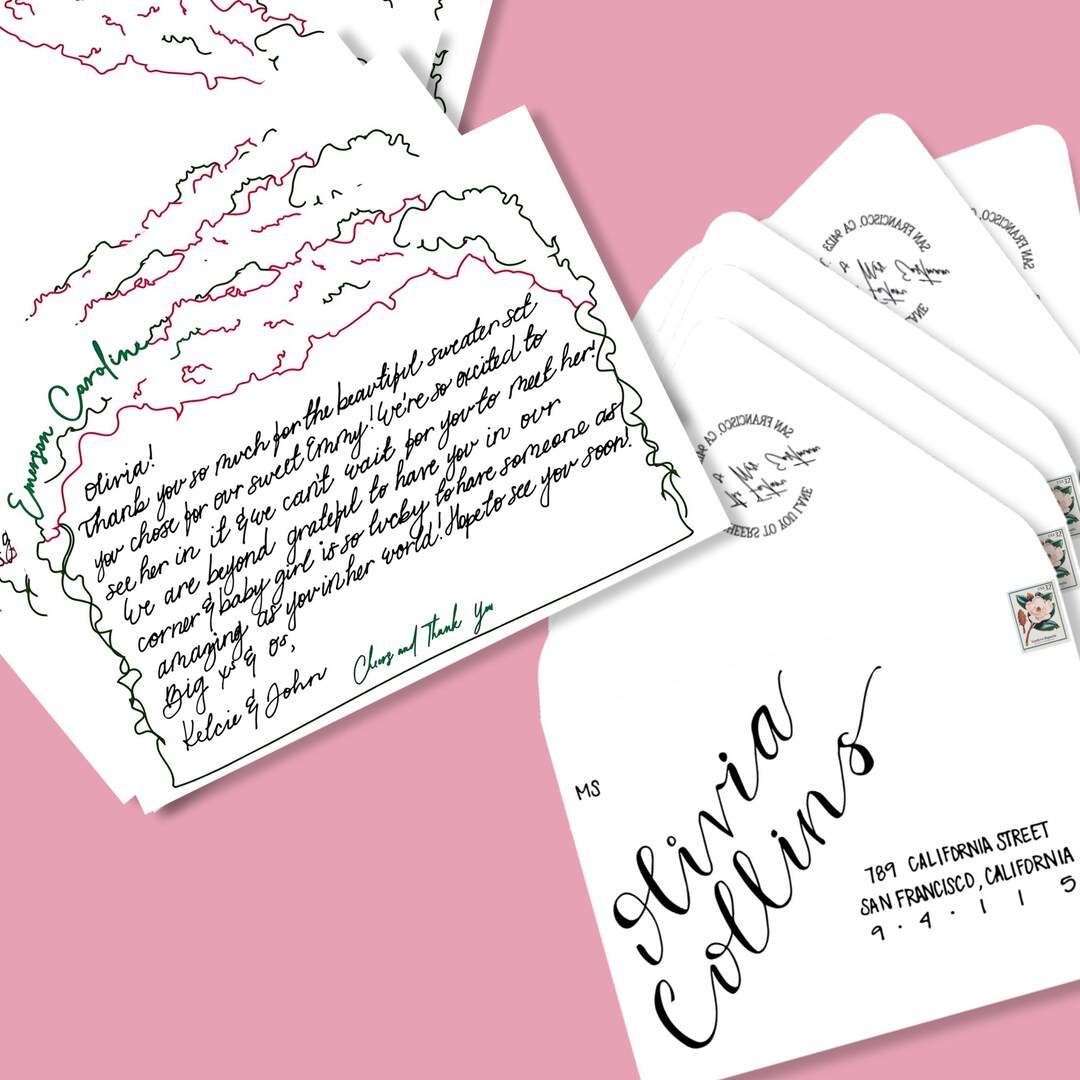 Emerson Caroline
Olivia!
Thank you so much for the beautiful sweater set
you chose for our sweet Emmy! We're so excited to
see her in it & we can't wait for you to meet her!
We are beyond grateful to have you in our
corner & baby girl is so lucky to have someone as
amazing as you in her world! Hope to see you soon!
Big xs & os,
Kelcie & John
Cheers and Thank You
SAN FRANCISCO, CA
SAN FRANCISCO, CA
SAN FRANCISCO,
MS
Olivia
Collins
789 CALIFORNIA STREET
SAN FRANCISCO, CALIFORNIA
9 · 4 · 1 1 5